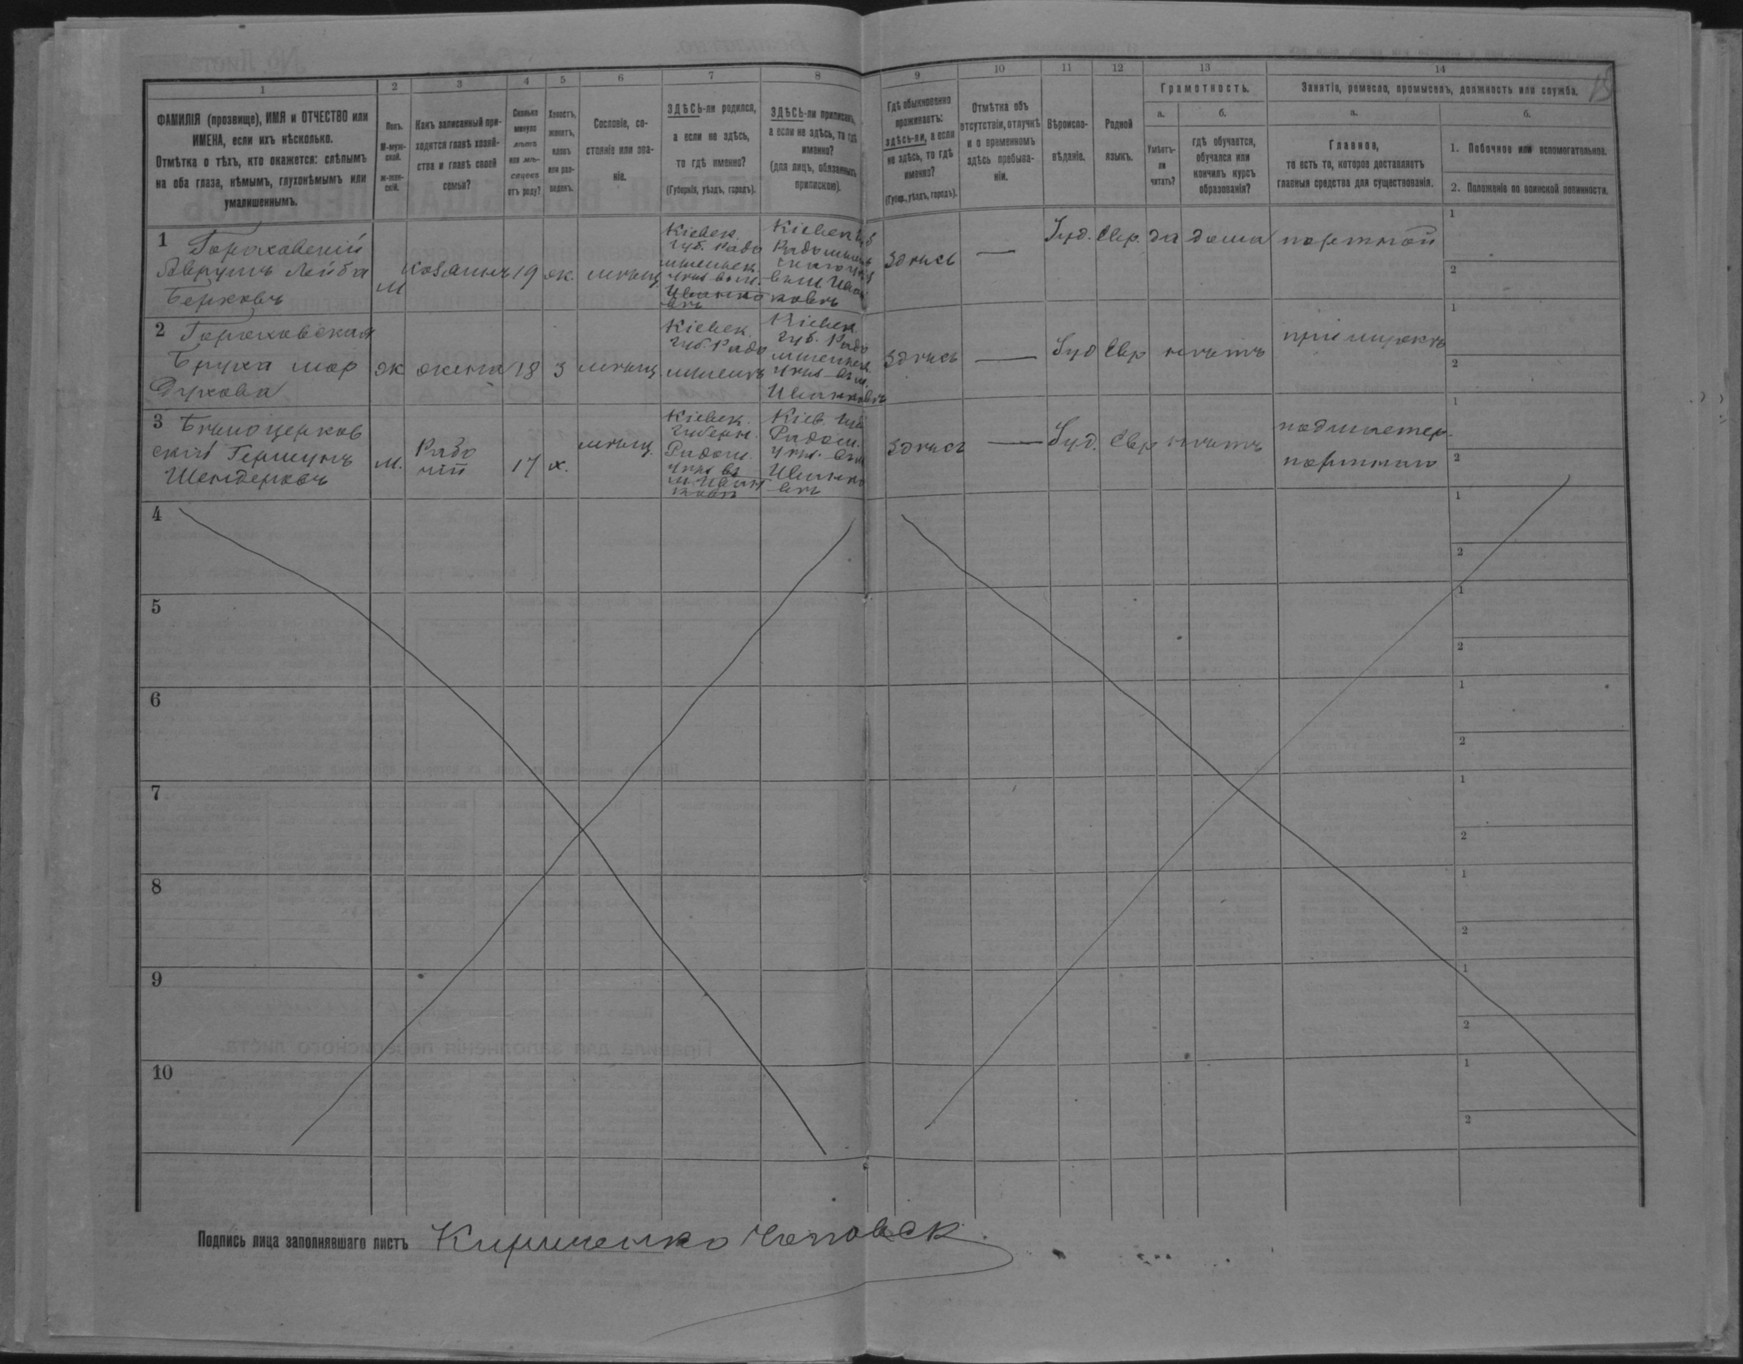 1
2
3
4
5
6
7
8
9
10
11
12
13
14
ФАМИЛІЯ (прозвище), ИМЯ и ОТЧЕСТВО или
ИМЕНА, если ихъ нѣсколько.
Отмѣтка о тѣхъ, кто окажется: слѣпымъ
на оба глаза, нѣмымъ, глухонѣмымъ или
умалишеннымъ.
Полъ.
М-муж-
ской.
ж-жен-
скій.
Какъ записанный при-
ходится главѣ хозяй-
ства и главѣ своей
семьи?
Сколько
минуло
лѣтъ
или мѣ-
сяцевъ
отъ роду?
Холостъ,
женатъ,
вдовъ
или раз-
веденъ.
Сословіе, со-
стояніе или зва-
ніе.
ЗДѢСЬ-ли родился,
а если не здѣсь,
то гдѣ именно?
(Губернія, уѣздъ, городъ).
ЗДѢСЬ-ли приписанъ,
а если не здѣсь, то гдѣ
именно?
(для лицъ, обязанныхъ
припискою).
Гдѣ обыкновенно
проживаетъ:
здѣсь-ли, а если
не здѣсь, то гдѣ
именно?
(Губер., уѣздъ, городъ).
Отмѣтка объ
отсутствіи, отлучкѣ
и о временномъ
здѣсь пребыва-
ніи.
Вѣроиспо-
вѣданіе.
Родной
языкъ.
Грамотность.
а.
б.
Умѣетъ-
ли
читать?
гдѣ обучается,
обучался или
кончилъ курсъ
образованія?
Занятіе, ремесло, промыселъ, должность или служба.
а.
б.
Главное,
то есть то, которое доставляетъ
главныя средства для существованія.
1. Побочное или вспомогательное.
2. Положеніе по воинской повинности.
1 Гороховскій
Аврумъ Лейба
Берковъ
м
хозяинъ
19
ж.
мѣщ
Кіевск.
губ. Радо
мысльск.
уѣзд. въ м.
Иванко
вѣ
Кіевск губ
Радомысль
скаго уѣз
въ м. Иван
ковѣ
здѣсь
—
Іуд.
Евр.
да
дома
портной
1
2
2 Гороховская
Бруха мор
Духова
ж
жена
18
з
мѣщ
Кіевск.
губ. Радо
мыслѣ
Кіевск.
губ. Радо
мысльск
уѣзд. въ м.
Иванковѣ
здѣсь
—
Іуд
Евр
нѣтъ
при мужѣ
1
2
3 Бѣлоцерков
скій Гершунъ
Шендеровъ
м.
Рабо
чій
17
х.
мѣщ.
Кіевск.
губерн.
Радом.
уѣзд въ
м. Иван
ковѣ
Кіев. губ
Радом.
уѣзд. въ м
Иванко
вѣ
здѣсь
—
Іуд.
Евр
нѣтъ
подмастер.
портного
1
2
4
1
2
5
1
2
6
1
2
7
1
2
8
1
2
9
1
2
10
1
2
Подпись лица заполнявшаго листъ